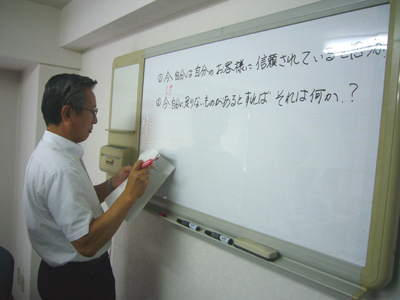 ① 今、自分は自分のお客様に信頼されていると思うか
② 今、自分に足りないものがあるとすれば それは何か。?